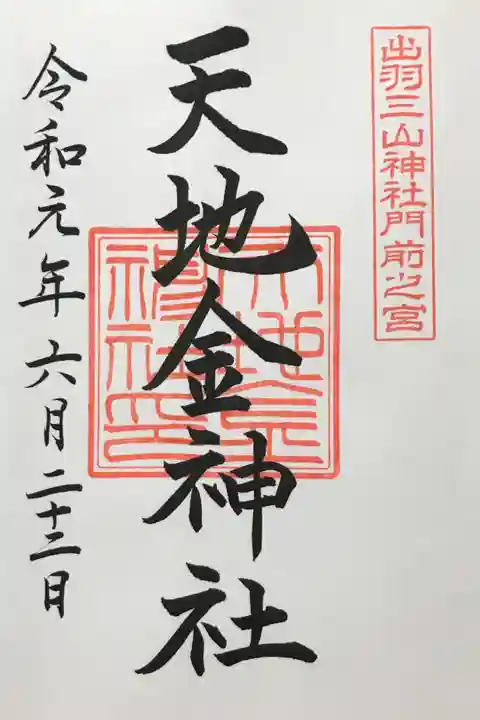 出羽三山神社門前之宮
天地金神社
天地金神社印
令和元年六月二十二日